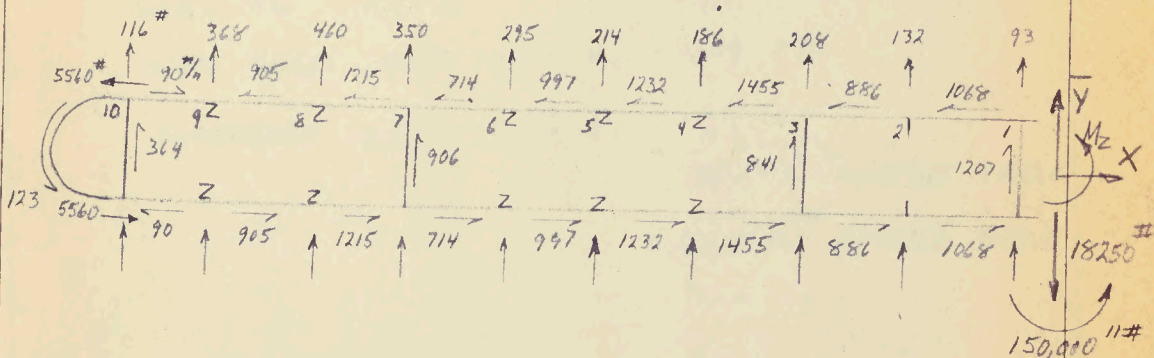 116# 368 460 350 295 214 186 208 132 93
5560# 90#/in 905 1215 714 997 1232 1455 886 1068 Y
10 9 Z 8 Z 7 6 Z 5 Z 4 Z 3 2 1 Mz
364 906 841 1207 X
123 5560 Z Z Z Z Z
90 905 1215 714 997 1232 1455 886 1068 18250#
150,000 "#